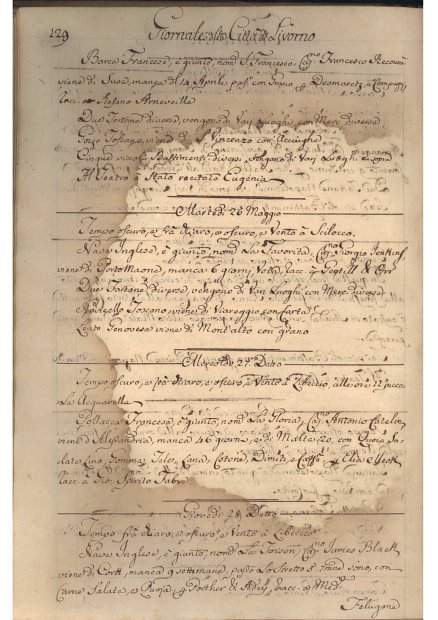 129 Giornale della Città di Livorno
Barca Francese, è giunto, nom.ª S. Francesco, Cap.no Francesco
viene di Susa, manca di 14 Aprile, pas. con Grano
racc. a Stefano
Due Tartane diverse, vengono di Varj Luoghi, con Merc. diverse
Toscano, viene di S. Vincenzo con
Cinque piccoli Bastimenti diversi, vengono di Varj Luoghi
Al Teatro è Stato recitato Eugenia
Martedì 26 Maggio
Tempo oscuro, e frà chiaro, e oscuro, e Vento à Scilocco.
Nave Inglese, è giunto, nom.ª La Favorita, Cap.no Giorgio Jenkins
viene di Porto Maone, manca 6 giorni, Vota, racc. a
Due Tartane diverse, vengono di Varj Luoghi, con Merc. diverse
Navicello Toscano, viene di Viareggio con Carta
Leuto Genovese viene di Mont'alto con grano
Mercoledì 27 Detto
Tempo oscuro, e frà chiaro, e oscuro, e Vento à Libeccio, alle ore 22 picco:
la Acquarella
Pollacca Francese, è giunto, nom.ª La Gloria, Cap.no Antonio
viene d'Alessandria, manca 46 giorni, e di Malta 20, con Quoja Sa=
late, Lino, Gomma, Tele, Lana, Cotone, Dimiti, e Caffè
racc. a Gio: Spirito
Giovedì 28 Detto
Tempo frà chiaro, e oscuro, e Vento à Libeccio
Nave Inglese, è giunto, nom.ª La Cap.no James Black
viene di Cork, manca 9 settimane, passò Lo Stretto 5. sono, con
Carne Salata, e Quoja racc. a
Felugone